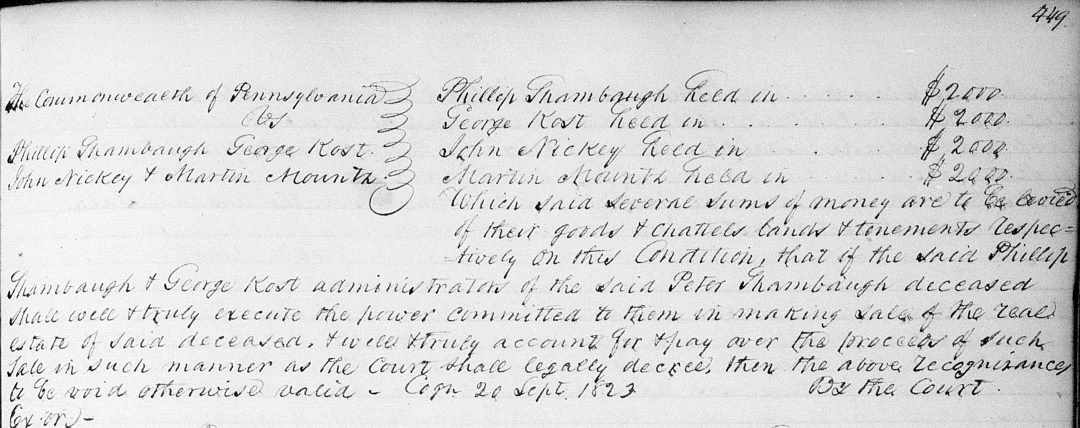 449.
The Commonwealth of Pennsylvania
vs
Phillip Shambaugh George Kost
John Nickey & Martin Mountz
Phillip Shambaugh held in $2000
George Kost held in $2000
John Nickey held in $2000
Martin Mountz held in $2000
Which said several sums of money are to be levied
of their goods & chattels lands & tenements respec=
=tively on this Condition, that if the said Phillip
Shambaugh & George Kost administrators of the said Peter Shambaugh deceased
shall well & truly execute the power committed to them in making sale of the real
estate of said deceased, & well & truly account for & pay over the proceeds of such
sale in such manner as the Court shall legally decree, then the above recognizances
to be void otherwise valid – Cogn 20 Sept. 1823 By the Court
Ex. on –